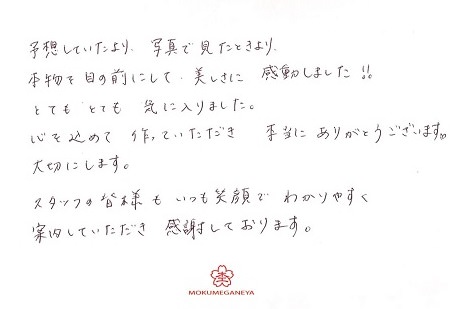 予想していたより、写真で見たときより、
本物を目の前にして、美しさに 感動しました!!
とても とても 気に入りました。
心を込めて 作っていただき 本当に ありがとうございます。
大切にします。
スタッフの皆様も いつも笑顔で わかりやすく
案内していただき 感謝しております。
MOKUMEGANEYA